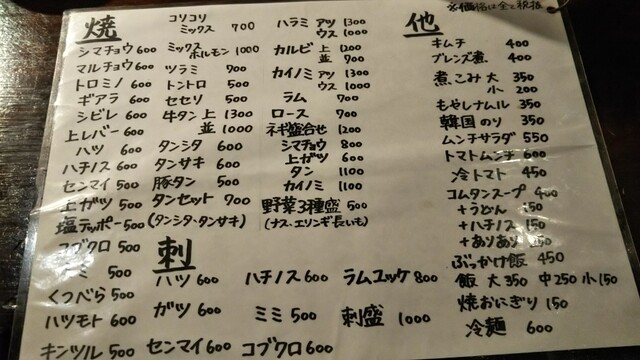 ※価格は全て税抜
焼
シマチョウ 600
マルチョウ 600
トロミノ 600
ギアラ 600
シビレ 600
上レバー 600
ハツ 600
ハチノス 600
センマイ 500
上ガツ 500
塩テッポー 500
コブクロ 500
ミミ 500
くつべら 500
ハツモト 600
キンツル 500
コリコリ
ミックス 700
ミックス
ホルモン 1000
ツラミ 700
トントロ 500
セセリ 500
牛タン 上 1300
並 1000
タンシタ 600
タンサキ 600
豚タン 500
タンセット 700
(タンシタ・タンサキ)
ハラミ アツ 1300
ウス 1000
カルビ 上 1200
並 700
カイノミ アツ 1300
ウス 1000
ラム 700
ロース 700
ネギ盛合せ 1200
シマチョウ 800
上ガツ 600
タン 1100
カイノミ 1100
野菜3種盛 500
(ナス・エリンギ・長いも)
刺
ハツ 600
ハチノス 600
ラムユッケ 800
ガツ 600
ミミ 500
刺盛 1000
センマイ 600
コブクロ 600
他
キムチ 400
ブレンズ煮 400
煮こみ 大 350
小 200
もやしナムル 350
韓国のり 350
ムンチサラダ 550
トマトムンチ 600
冷トマト 450
コムタンスープ 400
+うどん 150
+ハチノス 150
+ありあり 250
ぶっかけ飯 450
飯 大350 中250 小150
焼おにぎり 150
冷麺 600